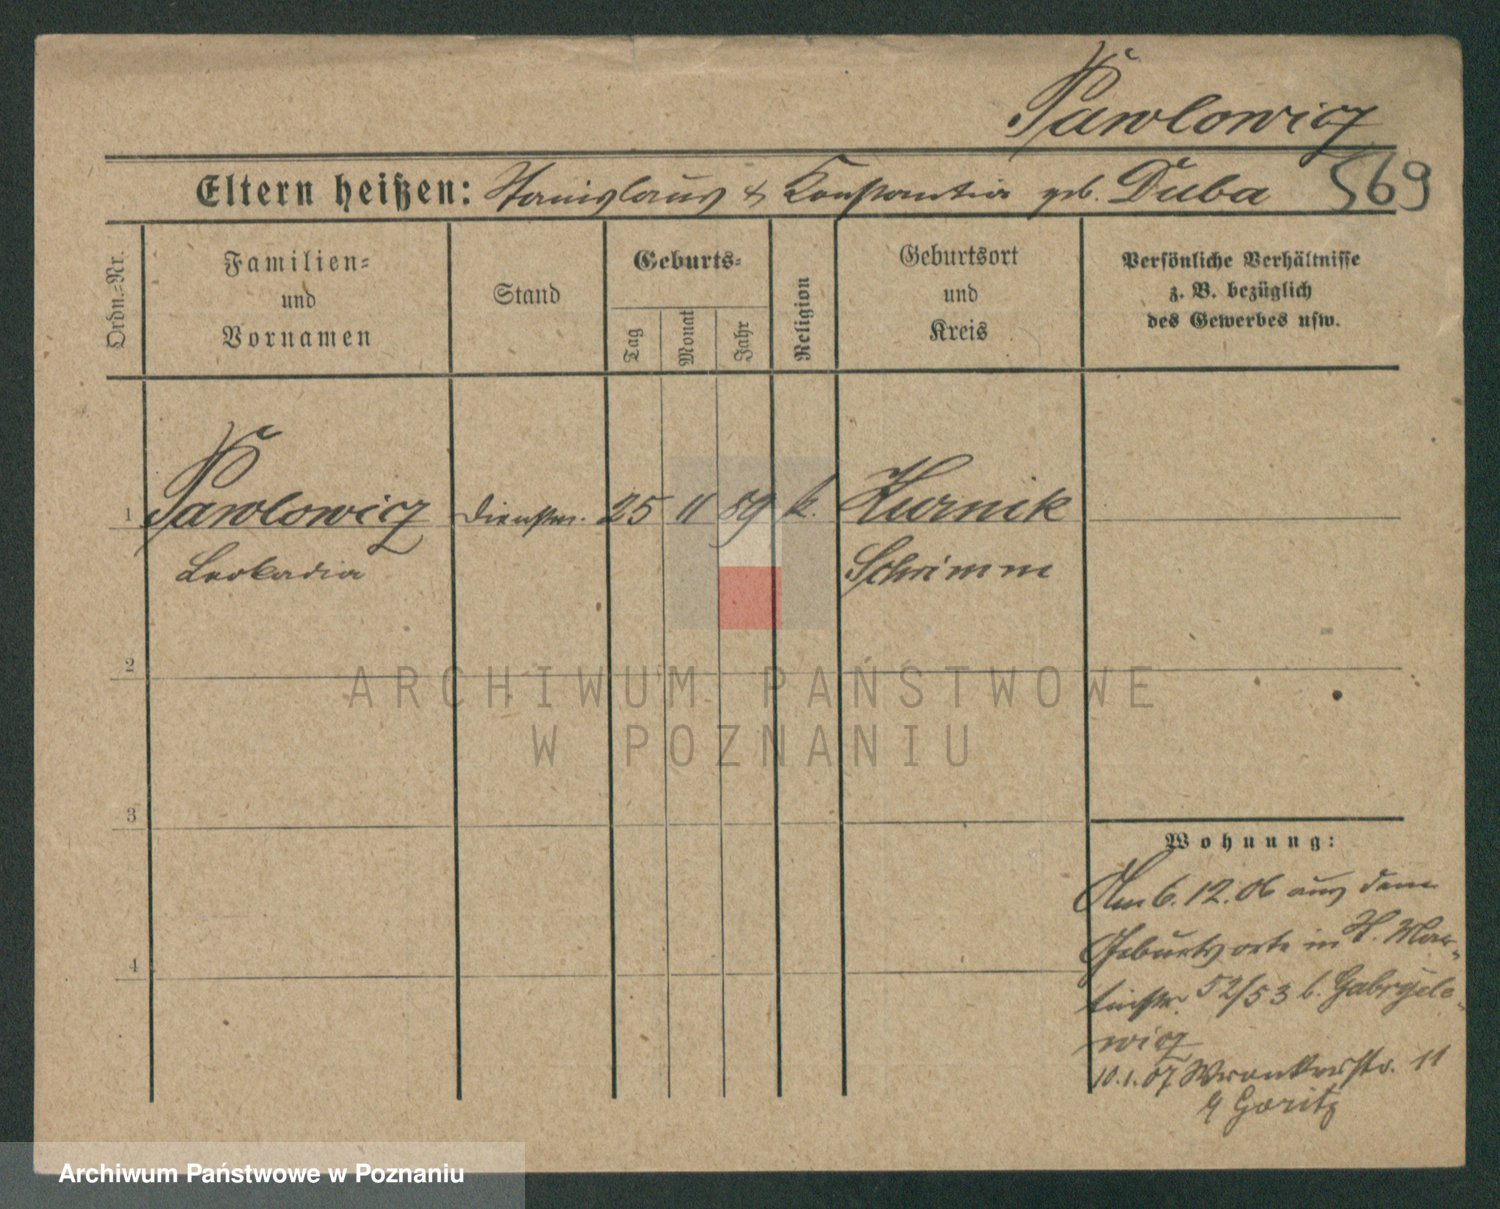 Pawlowicz
Eltern heißen: Stanislaus & Konstantia geb. Duba 569
Ordn.-Nr.
Familien-
und
Vornamen
Stand
Geburts-
Tag
Monat
Jahr
Religion
Geburtsort
und
Kreis
Persönliche Verhältnisse
z. B. bezüglich
des Gewerbes usw.
1 Pawlowicz Dienstm. 25 11 89 k. Kurnik
Leokadia Schrimm
2
ARCHIWUM PAŃSTWOWE
W POZNANIU
3
Wohnung:
Am 6.12.06 aus dem
Geburtsorte in St. Mar-
4
tinstr. 52/53 b. Gabryele-
wicz
10.1.07 Wronkerstr. 11
Goritz
Archiwum Państwowe w Poznaniu